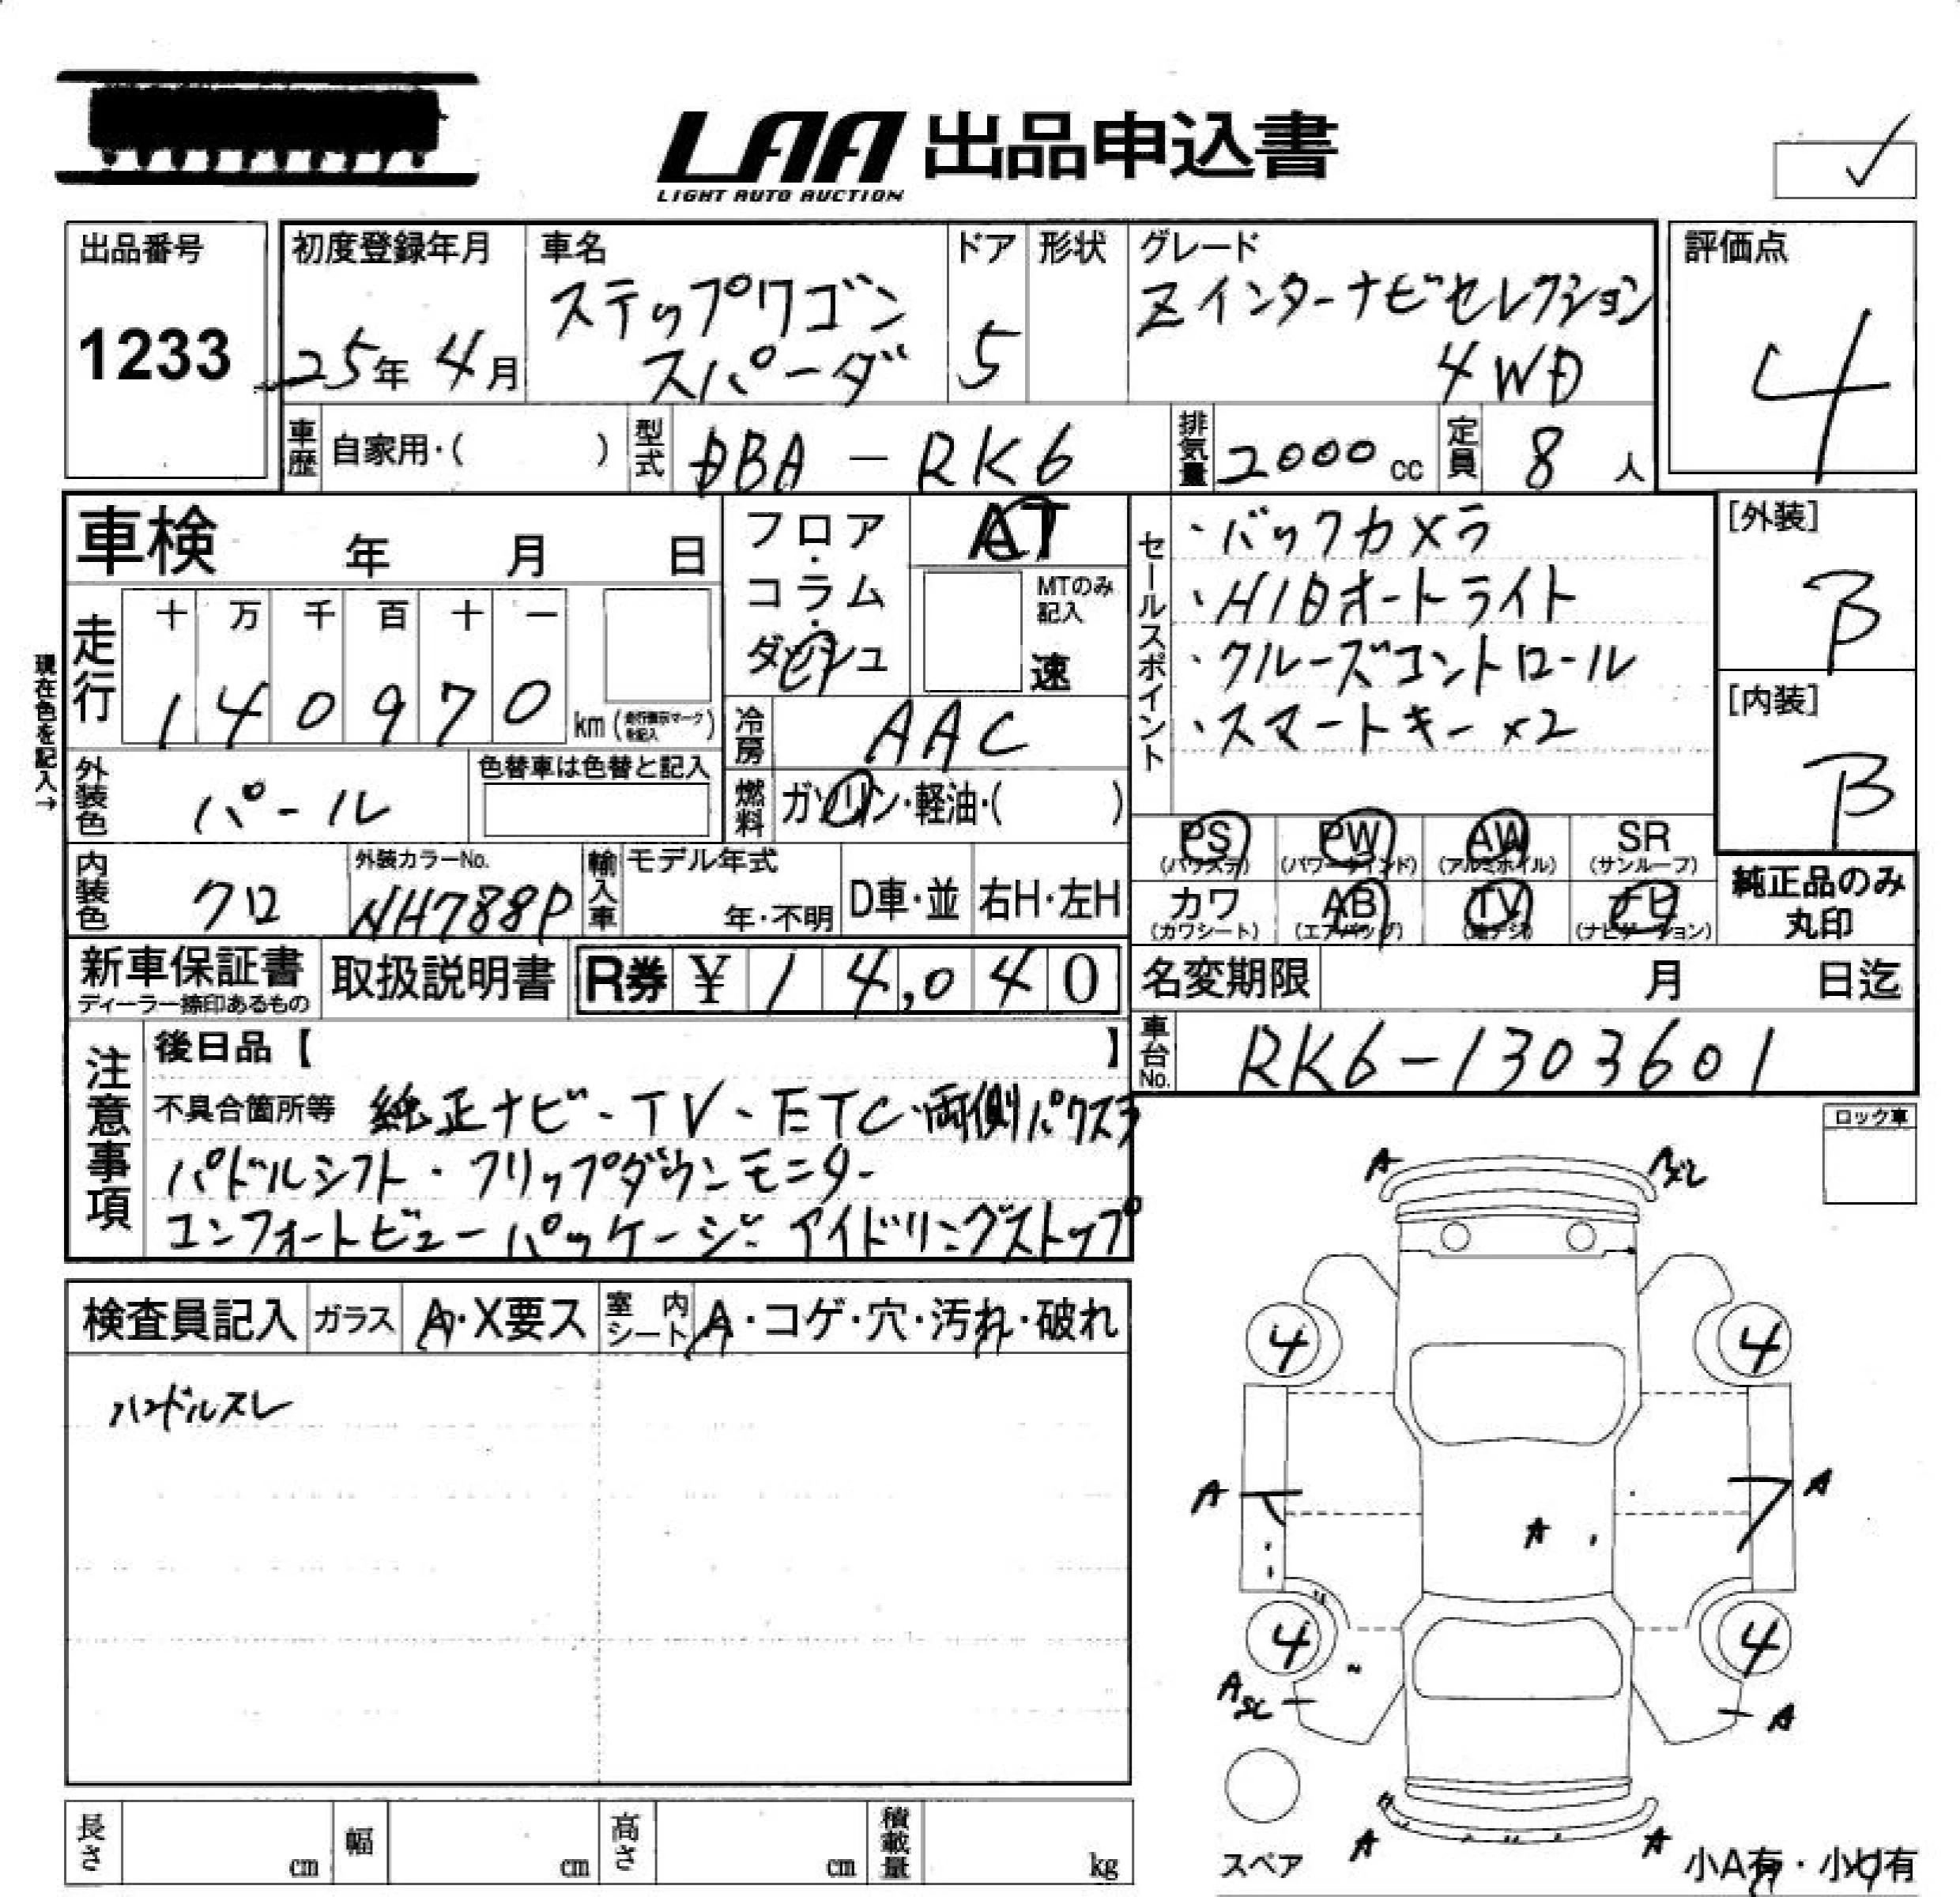 LAA 出品申込書
LIGHT AUTO AUCTION
出品番号
1233
初度登録年月
25年 4月
車名
ステップワゴン
スパーダ
ドア
5
形状
グレード
Zインターナビセレクション
4WD
評価点
4
車歴 自家用・( )
型式 DBA-RK6
排気量 2000cc
定員 8人
車検 年 月 日
現在色を記入→
走行
十 万 千 百 十 一
1 4 0 9 7 0 km (走行表示マークを記入)
フロア・コラム・ダッシュ
AT
MTのみ記入
速
冷房 AAC
燃料 ガソリン・軽油・( )
セールスポイント
・バックカメラ
・HIDオートライト
・クルーズコントロール
・スマートキー×2
[外装]
B
[内装]
B
外装色 パール
色替車は色替と記入
内装色 クロ
外装カラーNo.
NH788P
輸入車
モデル年式
年・不明
D車・並
右H・左H
PS (パワステ)
PW (パワーウインド)
AW (アルミホイル)
SR (サンルーフ)
カワ (カワシート)
AB (エアバッグ)
TV (地デジ)
ナビ (ナビゲーション)
純正品のみ
丸印
新車保証書
ディーラー捺印あるもの
取扱説明書
R券 ¥ 14,040
名変期限 月 日迄
車台No. RK6-1303601
注意事項
後日品【 】
不具合箇所等 純正ナビ・TV・ETC・両側パワスラ
パドルシフト・フリップダウンモニター
コンフォートビューパッケージ・アイドリングストップ
ロック車
検査員記入
ガラス A・X要ス
室内シート A・コゲ・穴・汚れ・破れ
ハンドルスレ
A
4 4
A A
A
4 4
A
A
A A
スペア
小A有・小U有
長さ cm
幅 cm
高さ cm
積載量 kg